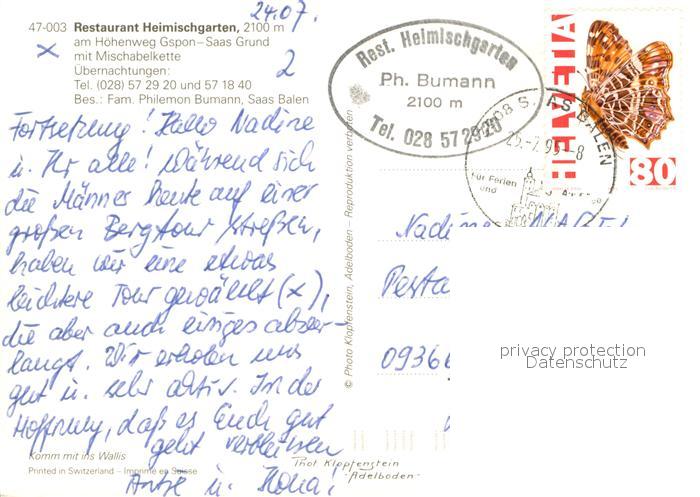 24.07.
47-003 Restaurant Heimischgarten, 2100 m
am Höhenweg Gspon–Saas Grund
mit Mischabelkette
Übernachtungen:
Tel. (028) 57 29 20 und 57 18 40
Bes.: Fam. Philemon Bumann, Saas Balen
x
2
Fortsetzung! Hallo Nadine
u. Ihr alle! Während sich
die Männer heute auf einer
großen Bergtour stressen,
haben wir eine etwas
leichtere Tour gewählt (x),
die aber auch einiges abver-
langt. Wir erholen uns
gut u. sehr aktiv. In der
Hoffnung, daß es Euch gut
geht verbleiben
Antje u. Ilona!
Komm mit ins Wallis
Printed in Switzerland – Imprimé en Suisse
© Photo Klopfenstein, Adelboden – Reproduktion verboten
Phot Klopfenstein
–Adelboden–
Rest. Heimischgarten
Ph. Bumann
2100 m
Tel. 028 57 29 20
SAAS BALEN
für Ferien
und
HELVETIA
80
Nadine
0936
privacy protection
Datenschutz